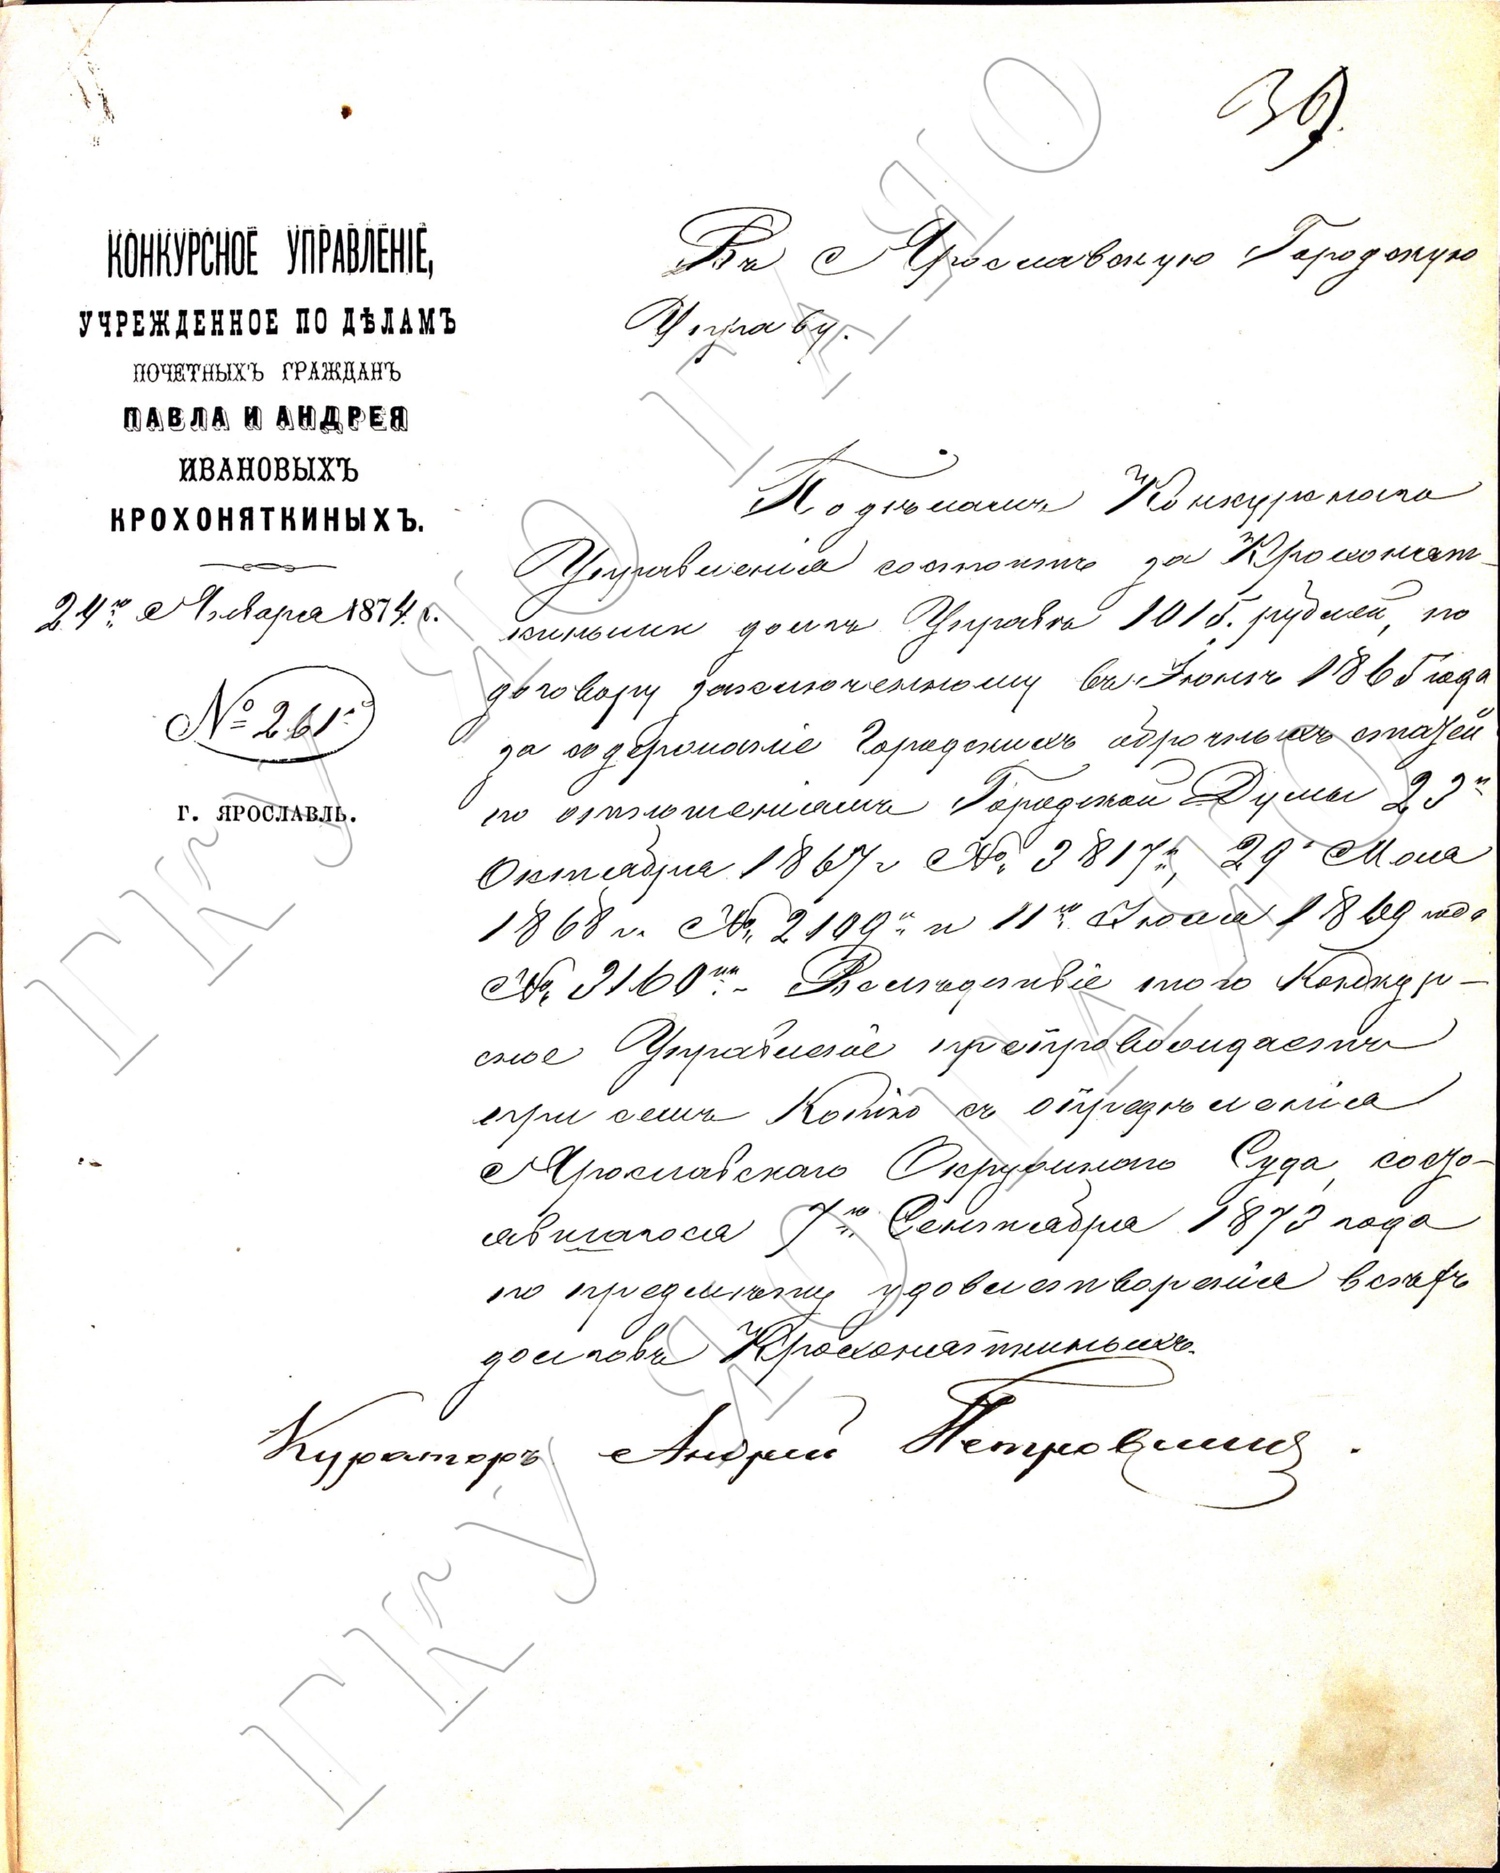 39.
КОНКУРСНОЕ УПРАВЛЕНІЕ,
УЧРЕЖДЕННОЕ ПО ДѢЛАМЪ
ПОЧЕТНЫХЪ ГРАЖДАНЪ
ПАВЛА И АНДРЕЯ
ИВАНОВЫХЪ
КРОХОНЯТКИНЫХЪ.
24го Января 1874 г.
№ 261й
Г. ЯРОСЛАВЛЬ.
Въ Ярославскую Городскую
Управу.
Конкурснаго
Управленія состоитъ за Крохонят-
киными долгъ Управѣ 1015. рублей, по
договору заключенному въ 1865 года
за содержаніе Городскихъ оброчныхъ статей
по отношеніямъ Городской Думы 23го
Октября 1867 г № 3817й, 29 Мая
1868 г. № 2109й и 11го Іюля 1869 года
№ 3160мъ. Вслѣдствіе того Конкур-
сное Управленіе препровождаетъ
при семъ Копію съ опредѣленія
Ярославскаго Окружнаго Суда, состо-
явшагося 7го Сентября 1873 года
по предмѣту удовлетворенія всѣхъ
долговъ Крохоняткиныхъ.
Кураторъ Андрей
ГКУ ЯО ГАЯО
ГКУ ЯО ГАЯО